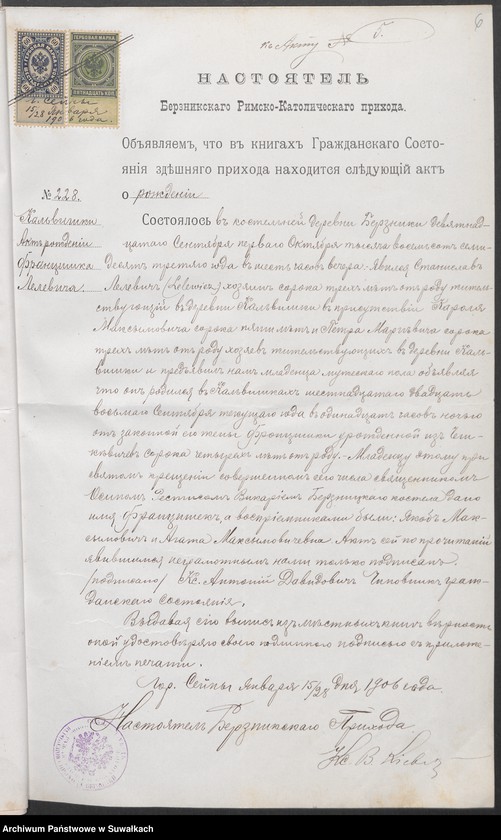 къ Акту № 5.
6
НАСТОЯТЕЛЬ
Берзникскаго Римско-Католическаго прихода.
Объявляемъ, что въ книгахъ Гражданскаго Состо-
янія здѣшняго прихода находится слѣдующій актъ
о рожденіи
№ 228.
Кальвишки
Актъ рожденія
Францишка
Лелевича.
Состоялось въ костельной деревни Берзники девятнад-
цатаго Сентября перваго Октября тысяча восемьсотъ семь-
десятъ третяго года въ шесть часовъ вечера. Явился Станиславъ
Лелевичъ (Lelewicz) хозяинъ сорока трехъ лѣтъ отъ роду житель-
ствующій въ деревни Кальвишки въ присутствіи Кароля
Максымовича сорока пяти лѣтъ и Петра Маркевича сорока
трехъ лѣтъ отъ роду хозяевъ жительствующихъ въ деревни Каль-
вишки и предъявилъ намъ младенца мужескаго пола объявляя
что онъ родился въ Кальвишкахъ шестнадцатаго двадцать
восьмаго Сентября текущаго года въ одинадцать часовъ ночью
отъ законной его жены Францишки урожденной изъ
сорока четырехъ лѣтъ отъ роду. Младенцу этому при
святомъ крещеніи совершенномъ сего числа священникомъ
Осипомъ Викаріемъ Берзницкаго костела дано
имя Францишекъ, а воспріемниками были: Якобъ Мак-
сымовичъ и Агата Максымовичевна. Актъ сей по прочитаніи
явившимся неграмотнымъ нами только подписанъ.
(подписано) Кс. Антоній Давидовичъ Чиновникъ граж-
данскаго состоянія.
Выдавая сію выпись изъ мѣстныхъ книгъ вѣрность
оной удостовѣряю своею подписью съ приложе-
ніемъ печати.
Гор. Сейны Января 15/28 дня 1906 года.
Настоятель Берзникскаго Прихода
Кс. В.
Archiwum Państwowe w Suwałkach